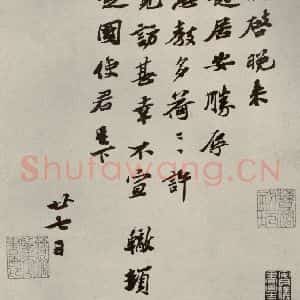 啓晚来
起居安勝辱
教多荷〻許
見訪甚幸不宣 轍頓
國使君足下
廿七日
Shufawang.CN